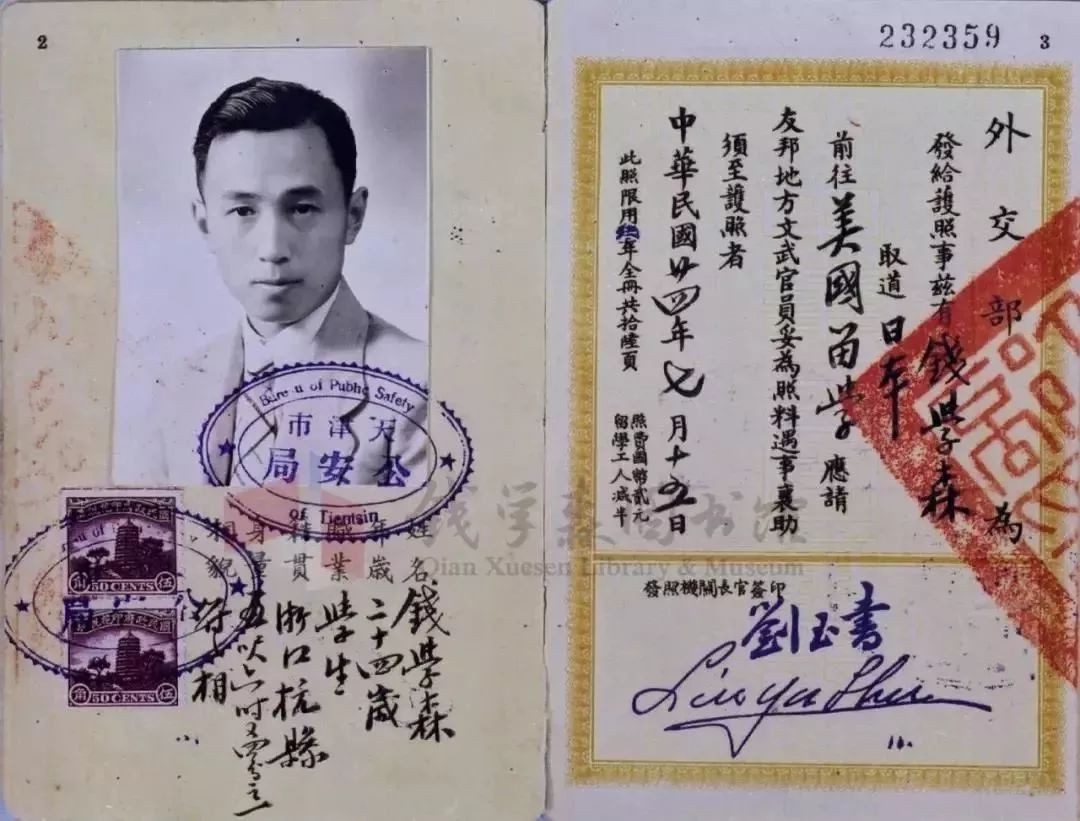 2
Bureau of Public Safety
天津市
公安局
of Tientsin
50 CENTS
50 CENTS
姓名 錢學森
年歲 二十四歲
職業 學生
籍貫 浙江杭縣
身量 五呎六吋又四分之一
相貌 附相
232359
3
外交部為
發給護照事茲有錢學森
取道日本
前往美國留學應請
友邦地方文武官員妥為照料遇事襄助
須至護照者
中華民國廿四年七月十五日
此照限用叁年全冊共拾陸頁
照費國幣貳元
留學工人減半
發照機關長官簽印
劉玉書
Liu Yu Shu
錢學森圖書館
Qian Xuesen Library & Museum